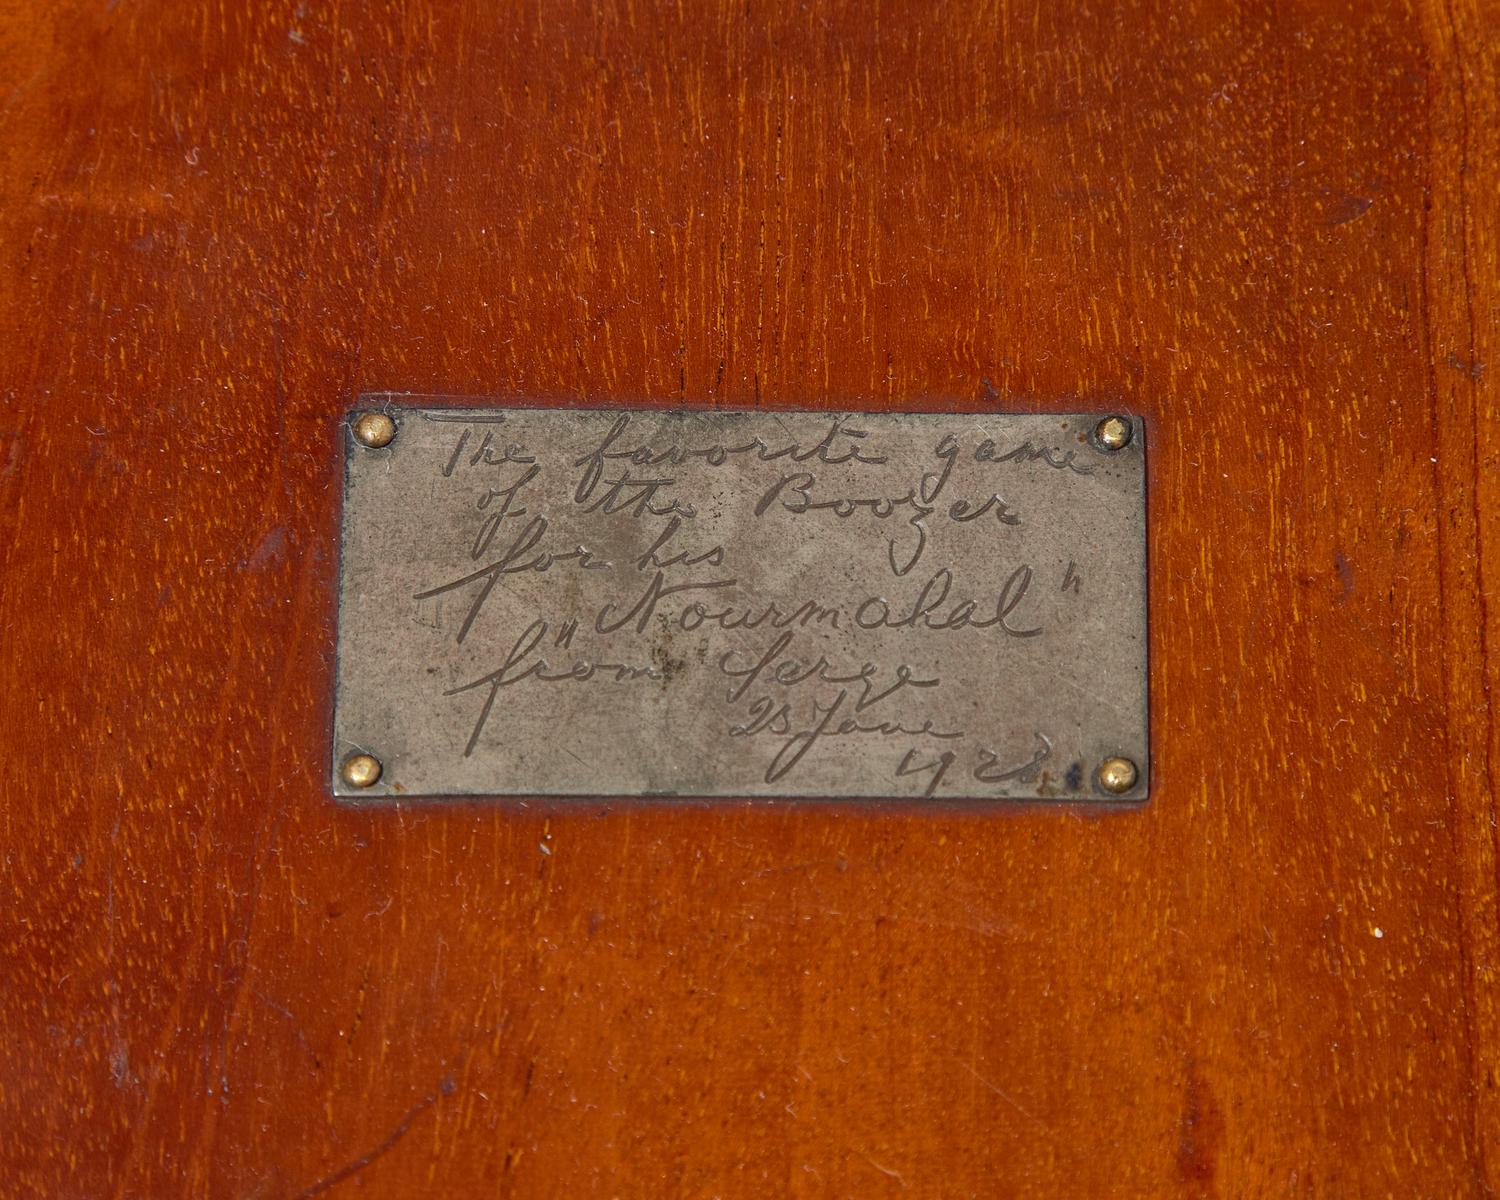 The favorite game
of the Boozer
for his
"Nourmahal"
from Serge
25 June
1928